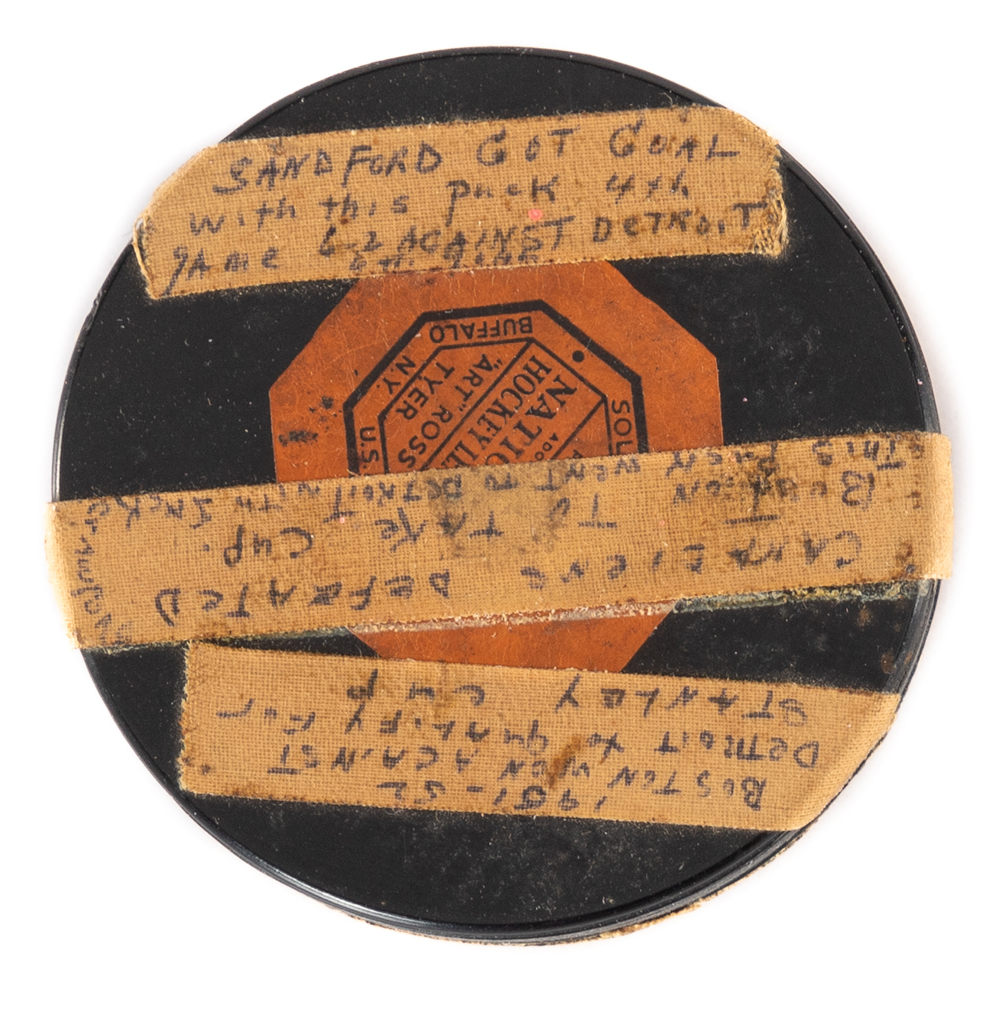 SANDFORD GOT GOAL
with this puck 4th
gAme 6-2 AGAINST DETROIT
BUFFALO
NY
TYER
"ART" ROSS
HOCKEY
NATIO
SOL
U.S.
THIS PUCK WENT TO DETROIT WITH
BOSTON TO TAKE CUP.
CANADIENS DEFEATED
1951-52
BOSTON WON AGAINST
DETROIT to QUALIFY FOR
STANLEY CUP